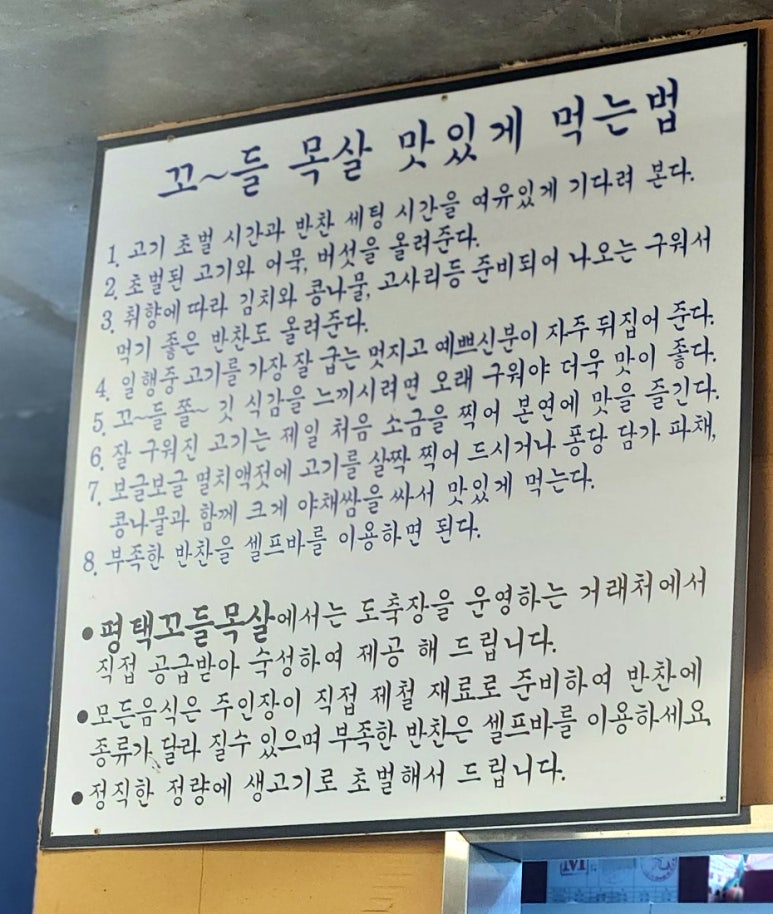 꼬~들 목살 맛있게 먹는법
1. 고기 초벌 시간과 반찬 세팅 시간을 여유있게 기다려 본다.
2. 초벌된 고기와 어묵, 버섯을 올려준다.
3. 취향에 따라 김치와 콩나물, 고사리등 준비되어 나오는 구워서
먹기 좋은 반찬도 올려준다.
4. 일행중 고기를 가장 잘 굽는 멋지고 예쁘신분이 자주 뒤집어 준다.
5. 꼬~들 쫄~ 깃 식감을 느끼시려면 오래 구워야 더욱 맛이 좋다.
6. 잘 구워진 고기는 제일 처음 소금을 찍어 본연에 맛을 즐긴다.
7. 보글보글 멸치액젓에 고기를 살짝 찍어 드시거나 퐁당 담가 파채,
콩나물과 함께 크게 야채쌈을 싸서 맛있게 먹는다.
8. 부족한 반찬을 셀프바를 이용하면 된다.
●평택꼬들목살에서는 도축장을 운영하는 거래처에서
직접 공급받아 숙성하여 제공 해 드립니다.
●모든음식은 주인장이 직접 제철 재료로 준비하여 반찬에
종류가 달라 질수 있으며 부족한 반찬은 셀프바를 이용하세요
●정직한 정량에 생고기로 초벌해서 드립니다.